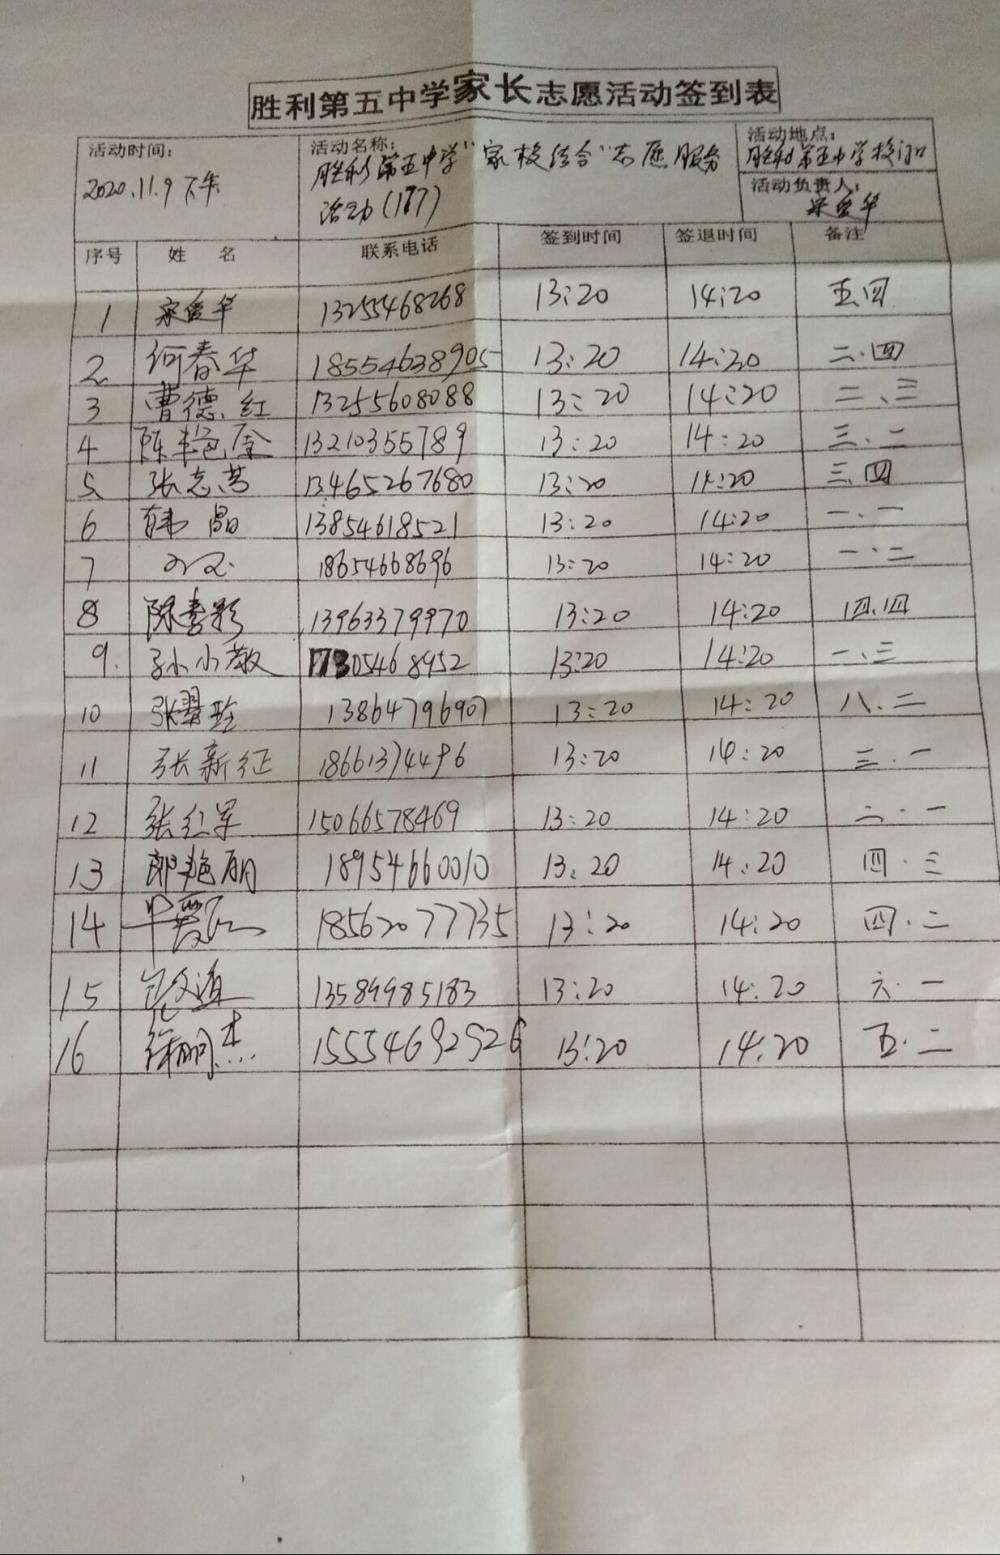 胜利第五中学家长志愿活动签到表
活动时间：
2020.11.9 下午
活动名称：
胜利第五中学"家校结合"志愿服务
活动(187)
活动地点：
胜利第五中学校门口
活动负责人：
序号 姓 名 联系电话 签到时间 签退时间 备注
1 13255468268 13:20 14:20 五.四
2 何春华 18554638905 13:20 14:20 二.四
3 曹德红 13255608088 13:20 14:20 二、三
4 13210355789 13:20 14:20 三.一
5 张志营 13465267680 13:20 14:20 三.四
6 韩晶 13854618521 13:20 14:20 一.一
7 18654668696 13:20 14:20 一.二
8 陈春彩 13963379970 13:20 14:20 四.四
9. 孙小敏 17305468952 13:20 14:20 一.三
10 张翠玲 13864796907 13:20 14:20 八.二
11 张新征 18661374496 13:20 14:20 三.一
12 张红军 15066578469 13:20 14:20 二.一
13 郎艳丽 18954660010 13:20 14:20 四.三
14 18562077735 13:20 14:20 四.二
15 13589985183 13:20 14:20 六.一
16 徐明杰 15554692926 13:20 14:20 五.二